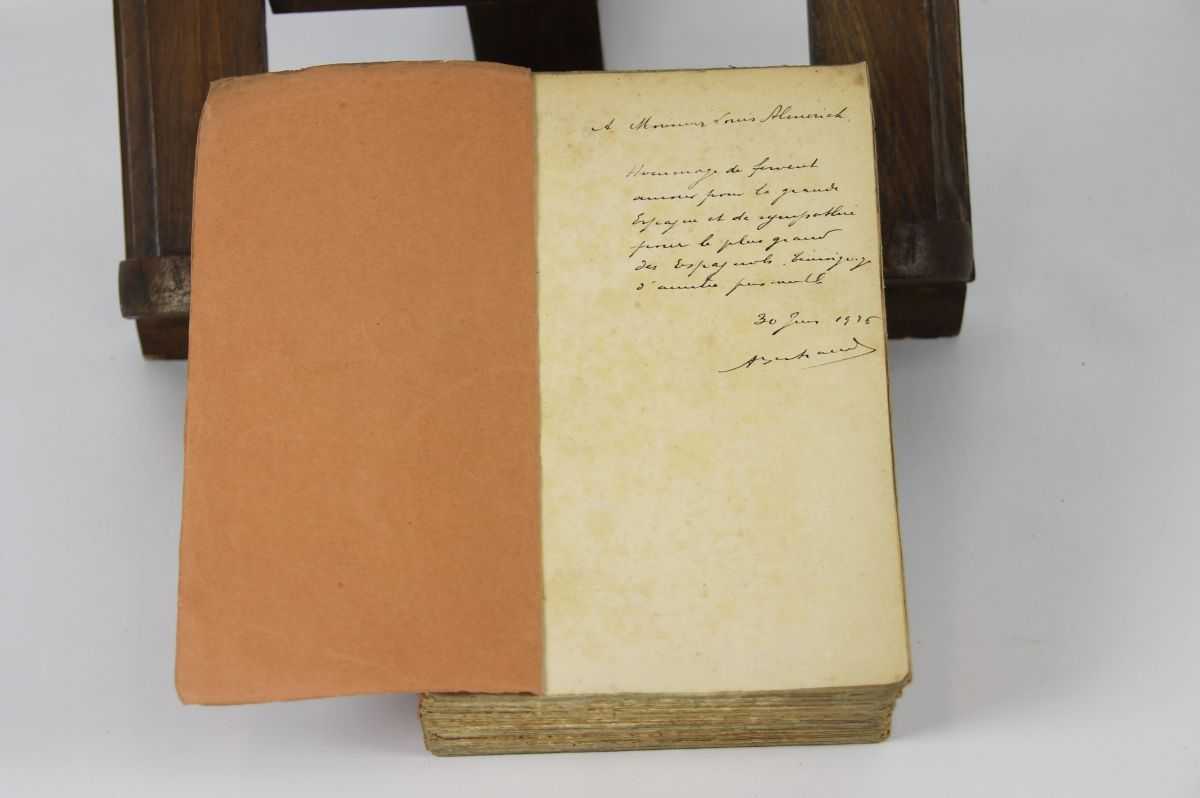 A Monsieur Louis Almerich.
Hommage de fervent
amour pour la grande
Espagne et de sympathie
pour le plus grand
des Espagnols. Témoignage
d'amitié personnelle
30 Juin 19